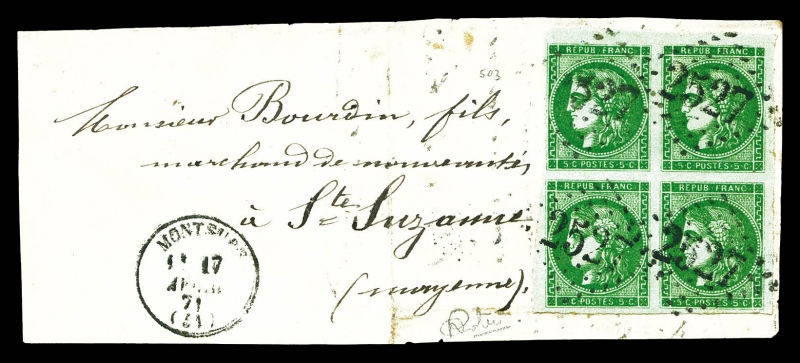 503
REPUB FRANC
REPUB FRANC
2527
5 C · POSTES · 5 C
5 C · POSTES · 5 C
REPUB FRANC
REPUB FRANC
2527
2527
5 C · POSTES · 5 C
5 C · POSTES · 5 C
Monsieur Bourdin, fils,
marchand de nouveautés,
à Ste Suzanne.
(mayenne).
17
AVRIL
71